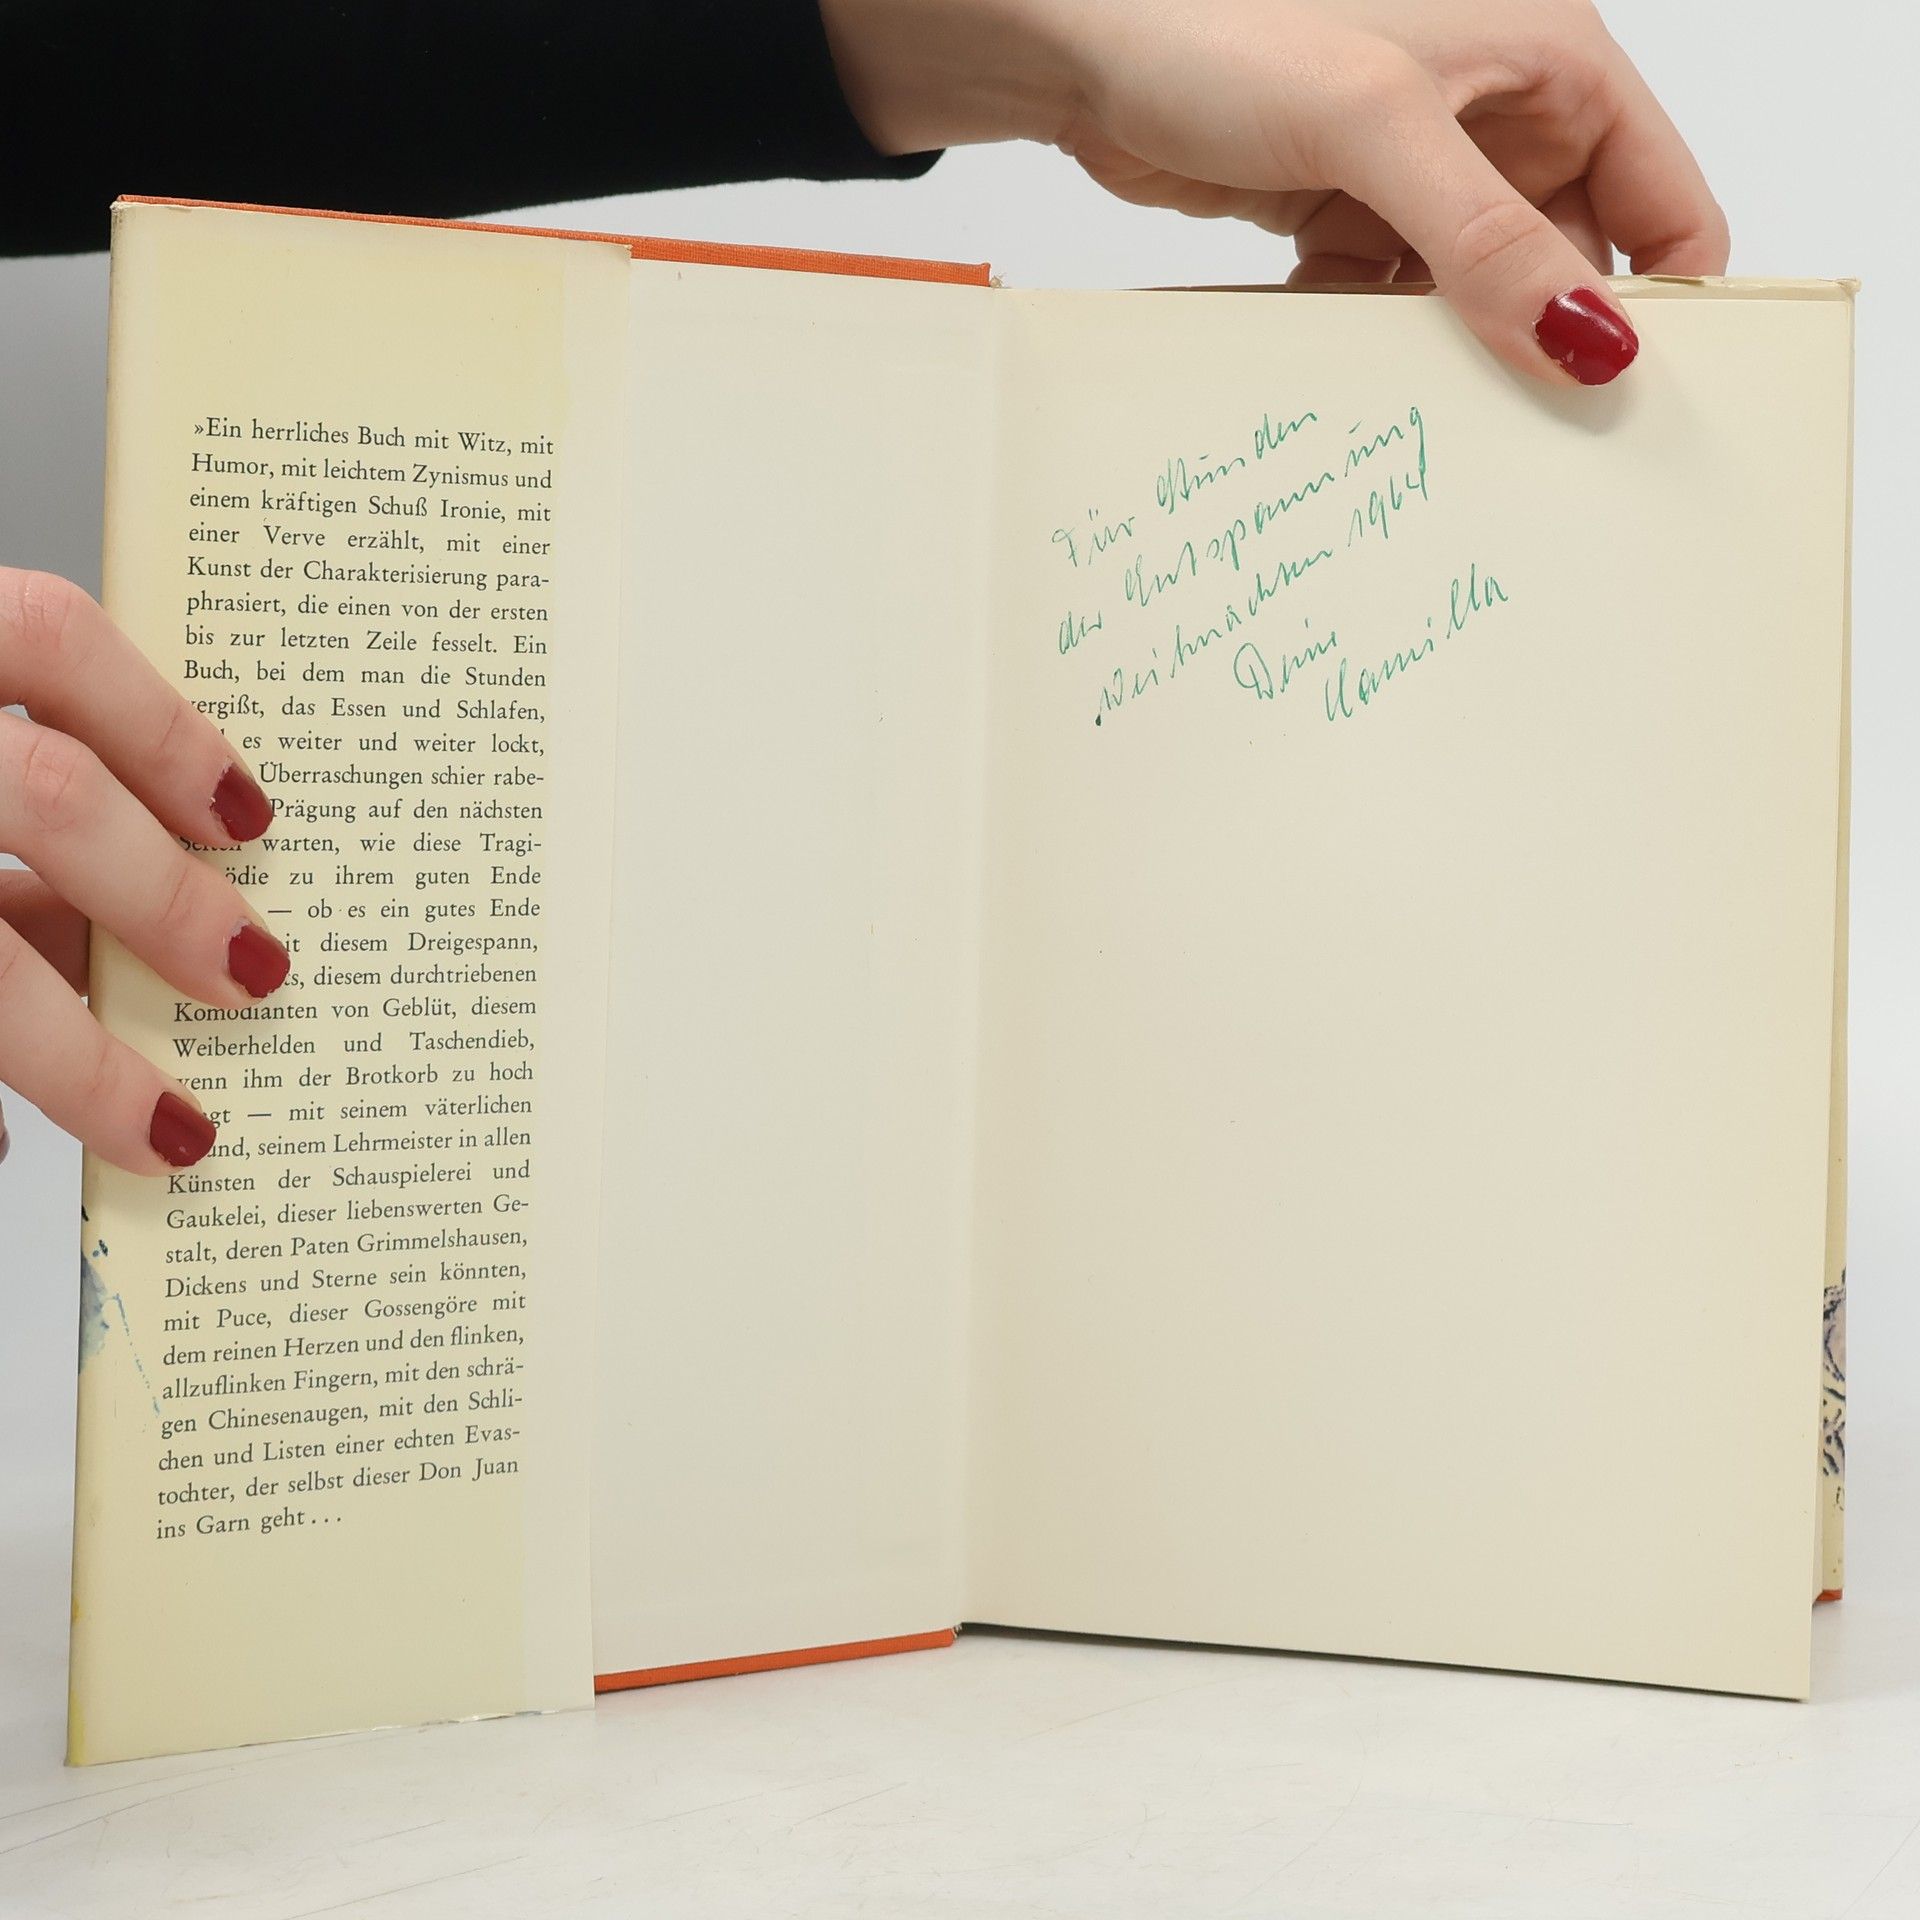 »Ein herrliches Buch mit Witz, mit
Humor, mit leichtem Zynismus und
einem kräftigen Schuß Ironie, mit
einer Verve erzählt, mit einer
Kunst der Charakterisierung para-
phrasiert, die einen von der ersten
bis zur letzten Zeile fesselt. Ein
Buch, bei dem man die Stunden
vergißt, das Essen und Schlafen,
es weiter und weiter lockt,
Überraschungen schier rabe-
Prägung auf den nächsten
Seiten warten, wie diese Tragi-
ödie zu ihrem guten Ende
— ob es ein gutes Ende
diesem Dreigespann,
diesem durchtriebenen
Komödianten von Geblüt, diesem
Weiberhelden und Taschendieb,
wenn ihm der Brotkorb zu hoch
— mit seinem väterlichen
seinem Lehrmeister in allen
Künsten der Schauspielerei und
Gaukelei, dieser liebenswerten Ge-
stalt, deren Paten Grimmelshausen,
Dickens und Sterne sein könnten,
mit Puce, dieser Gossengöre mit
dem reinen Herzen und den flinken,
allzuflinken Fingern, mit den schrä-
gen Chinesenaugen, mit den Schli-
chen und Listen einer echten Evas-
tochter, der selbst dieser Don Juan
ins Garn geht . . .
Für Stunden
der Entspannung
Weihnachten 1964
Deine
Camilla